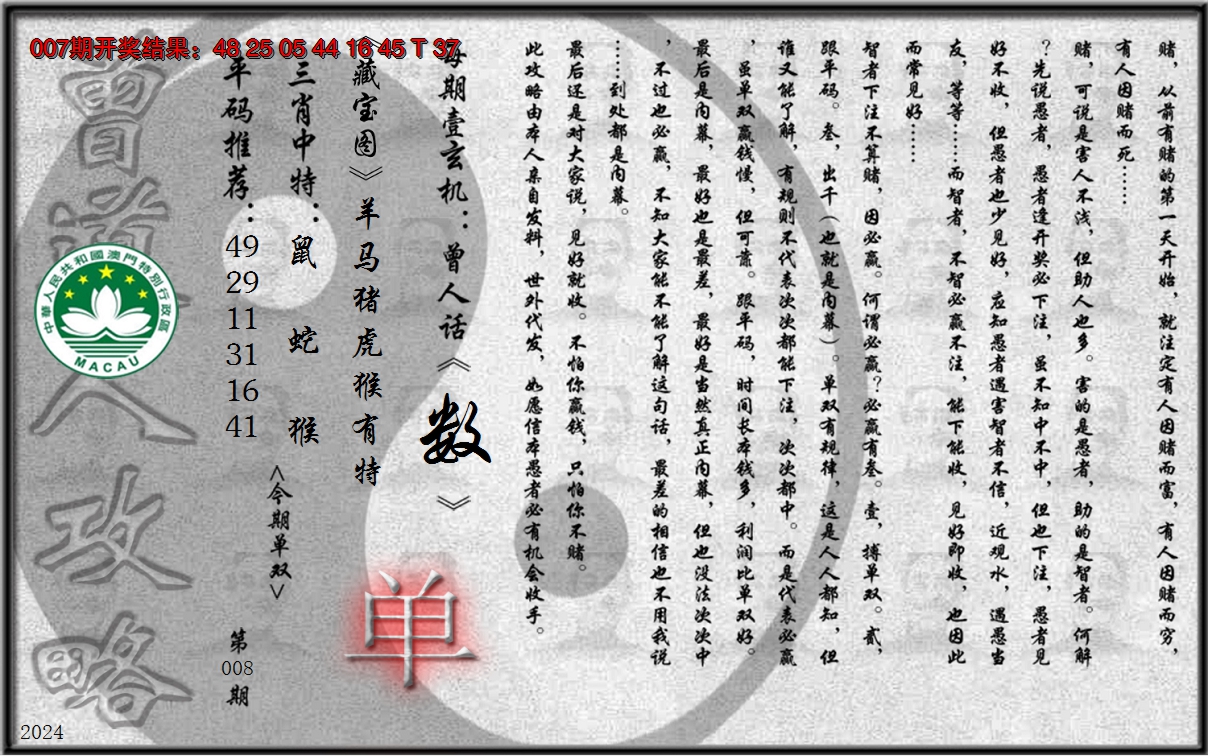 007期开奖结果：48 25 05 44 16 45 T 37
赌，从前有赌的第一天开始，就注定有人因赌而富，有人因赌而穷，
有人因赌而死……
赌，可说是害人不浅，但助人也多。害的是愚者，助的是智者。何解
？先说愚者，愚者逢开奖必下注，虽不知中不中，但也下注，愚者见
好不收，但愚者也少见好，应知愚者遇害智者不信，近观水，遇愚当
友，等等……而智者，不智必赢不注，能下能收，见好即收，也因此
而常见好……
智者下注不算赌，因必赢。何谓必赢？必赢有叁。壹，搏单双。贰，
跟平码。叁，出千（也就是内幕）。单双有规律，这是人人都知，但
谁又能了解，有规则不代表次次都能下注，次次都中。而是代表必赢
，虽单双赢钱慢，但可靠。跟平码，时间长本钱多，利润比单双好。
最后是内幕，最好也是最差，最好是当然真正内幕，但也没法次次中
，不过也必赢，不知大家能不能了解这句话，最差的相信也不用我说
……到处都是内幕。
最后还是对大家说，见好就收。不怕你赢钱，只怕你不赌。
此攻略由本人亲自发料，世外代发，如愿信本愚者必有机会收手。
每期壹玄机：曾人话《数》
《藏宝图》羊马猪虎猴有特
三肖中特：鼠 蛇 猴
<今期单双>
单
平码推荐：49 29 11 31 16 41
第008期
曾道人攻略
中華人民共和國澳門特別行政區
MACAU
2024